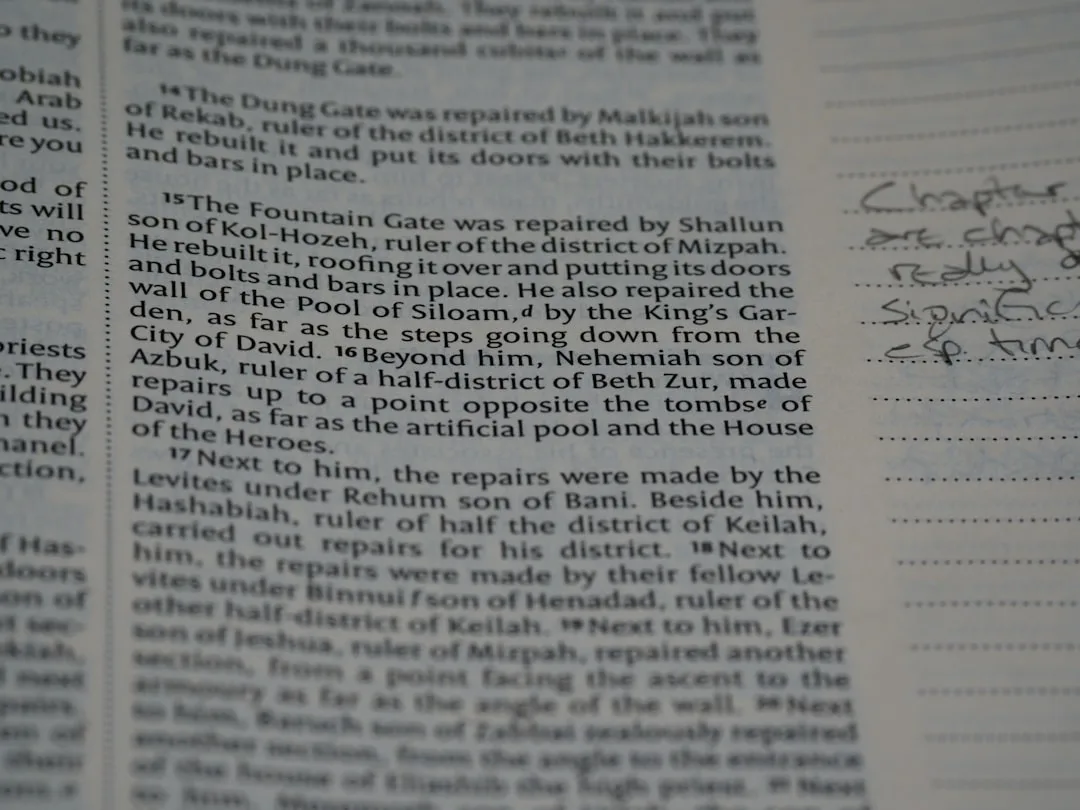 o they
obiah
Arab
ed us.
re you
od of
ts will
ve no
right
priests
. They
ilding
n they
nanel.
ction,
f Has-
doors
on of
its doors with their bolts and bars in place. They
also repaired a thousand cubits of the wall as
far as the Dung Gate.
14 The Dung Gate was repaired by Malkijah son
of Rekab, ruler of the district of Beth Hakkerem.
He rebuilt it and put its doors with their bolts
and bars in place.
15 The Fountain Gate was repaired by Shallun
son of Kol-Hozeh, ruler of the district of Mizpah.
He rebuilt it, roofing it over and putting its doors
and bolts and bars in place. He also repaired the
wall of the Pool of Siloam,d by the King's Gar-
den, as far as the steps going down from the
City of David. 16 Beyond him, Nehemiah son of
Azbuk, ruler of a half-district of Beth Zur, made
repairs up to a point opposite the tombse of
David, as far as the artificial pool and the House
of the Heroes.
17 Next to him, the repairs were made by the
Levites under Rehum son of Bani. Beside him,
Hashabiah, ruler of half the district of Keilah,
carried out repairs for his district. 18 Next to
him, the repairs were made by their fellow Le-
vites under Binnui f son of Henadad, ruler of the
other half-district of Keilah. 19 Next to him, Ezer
son of Jeshua, ruler of Mizpah, repaired another
section, from a point facing the ascent to the
armoury as far as the angle of the wall. 20 Next
to him, Baruch son of Zabbai zealously repaired
another section, from the angle to the entrance
of the house of Eliashib the high priest. 21 Next
Chapter
are chapt
really
Signific
esp. time